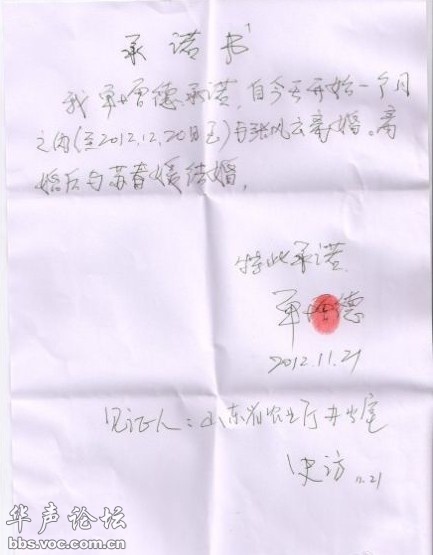 承诺书
我单增德承诺，自今天开始一个月
之内(至2012.12.20日至)与张凤云离婚。离
婚后与苏春媛结婚，
特此承诺.
单增德
2012.11.21
见证人：山东省农业厅
史访 11.21
华声论坛
bbs.voc.com.cn